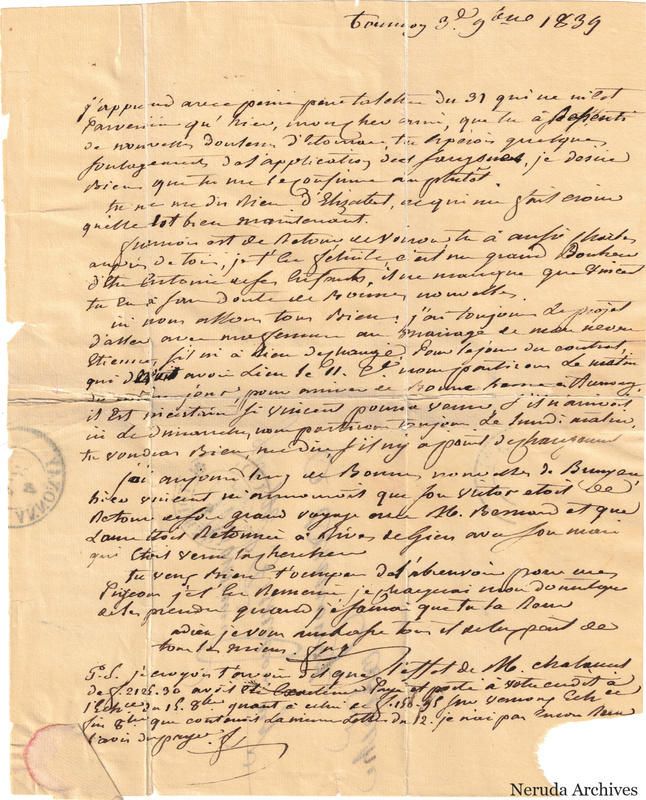 Tournon 3 9bre 1839
j'apprend avec peine par ta lettre du 31 qui ne m'est
parvenue qu'hier, mon cher ami, que tu à ressenti
de nouvelles douleurs d'Estomac, tu espérois quelque
soulagement de l'application des sangsues, je desire
Bien que tu me le confirme au plutôt.
tu ne me dis Rien d'Elisabet, ce qui me fait croire
qu'elle Est bien maintenant.
est de Retour de tu à aussi Charles
auprès de toi, je t'en felicite c'est un grand Bonheur
d'être Entouré de ses Enfants, il ne manque que Vincent
tu En à sans doute de Bonnes nouvelles.
ici nous allons tous Bien, j'ai toujours le projet
d'aller avec ma femme au mariage de mon neveu
Etienne, s'il n'i à Rien de changé pour le jour du contrat,
qui avoir Lieu le 11. Ct nous partirons Le matin
du jour, pour arriver de Bonne heure à Annonay,
il Est incertain si Vincent pourra venir, s'il n'arrivoit
ici le dimanche, nous partirions toujours le Lundi matin,
tu voudras Bien, me dire s'il n'y a point de changement
j'ai aujourd'huy de Bonnes nouvelles de
hier Vincent m'annoncoit que son Victor etoit de
Retour de son grand voyage avec M. Bernard et que
Laure etoit Retournée à Rives de Giers avec son mari
qui Etoit venu la chercher
tu veux Bien t'occuper de l'abreuvoir pour mes
Pigeons je t'En Remercie, je chargerai mon domestique
de le prendre quand je saurai que tu la
adieu je vous embrasse tous il de la part de
tous les miens.
P.S. je croyois t'avoir dit que l'effet de M. Chabert
de f. 2125.30 avoit été payé et porté à votre crédit à
du 15. 8bre quant à celui de f. 150.95 sur Vernoux Ech ce
fin 8bre que contenoit La mienne Lettre du 12. je n'ai pas Encore Reçu
l'avis du payé.
ANNONAY
Neruda Archives